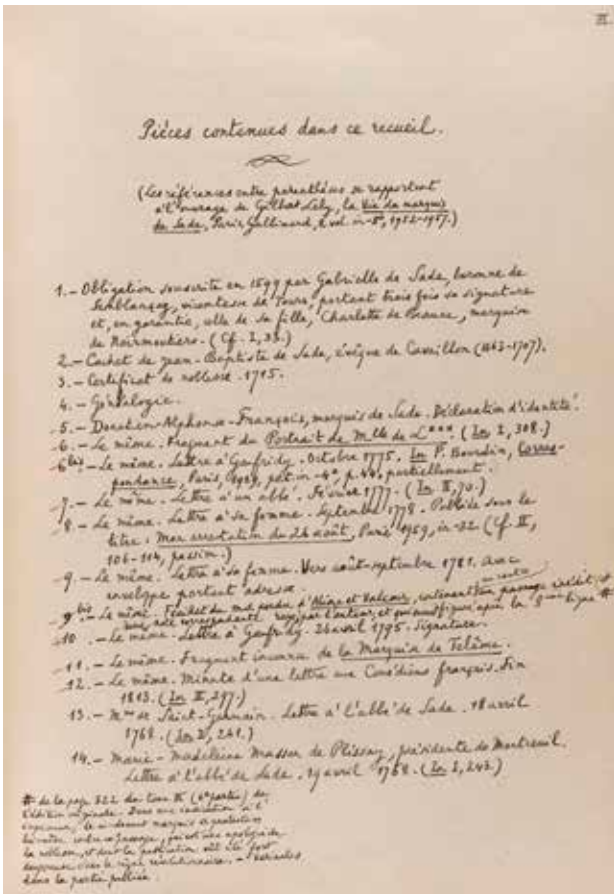 II.
Pièces contenues dans ce recueil.
(Les références entre parenthèses se rapportent
à l'ouvrage de Gilbert Lely, la Vie du marquis
de Sade, Paris, Gallimard, 2 vol. in-8°, 1952-1957.)
1. – Obligation souscrite en 1599 par Gabrielle de Sade, baronne de
Semblançay, vicomtesse de Tours, portant trois fois sa signature
et, en garantie, celle de sa fille, Charlotte de Beaune, marquise
de Noirmoutiers. (Cf. I, 33.)
2. – Cachet de Jean-Baptiste de Sade, évêque de Cavaillon (1663-1707).
3. – Certificat de noblesse. 1715.
4. – Généalogie.
5. – Donatien-Alphonse-François, marquis de Sade. Déclaration d'identité.
6. – Le même. Fragment du Portrait de Mlle de L***. (In I, 308.)
6 bis. – Le même. Lettre à Gaufridy. Octobre 1775. In P. Bourdin, Corres-
pondance, Paris, 1929, pet. in-4°, p. 44, partiellement.
7. – Le même. Lettre à un abbé. Février 1777. (In II, 70.)
8. – Le même. Lettre à sa femme. Septembre 1778. Publiée sous le
titre : Mon arrestation du 26 août, Paris, 1959, in-32 (Cf. II,
106-114, passim.)
9. – Le même. Lettre à sa femme. Vers août-septembre 1781. Avec
enveloppe portant adresse.
9 bis – Le même. Feuillet du md. perdu d'Aline et Valcour, contenant un passage inédit,
une note correspondante rayée par l'auteur, et qui aurait figuré après la ligne #
10. – Le même. Lettre à Gaufridy. 26 avril 1795. Signature.
11. – Le même. Fragment inconnu de la Marquise de Telême.
12. – Le même. Minute d'une lettre aux Comédiens français. Fin
1813. (In II, 297.)
13. – Mme de Saint-Germain. Lettre à l'abbé de Sade. 18 avril
1768. (In I, 241.)
14. – Marie-Madeleine Masson de Plissay, présidente de Montreuil.
Lettre à l'abbé de Sade. 29 avril 1768. (In I, 242)
# de la page 322 du tome II (4e partie) de
l'édition originale. Dans une indication à l'
imprimeur, le ci-devant marquis
lui-même passage, qui est une apologie de
la noblesse, et dont la publication eût été fort
dangereuse sous le régime révolutionnaire. –
dans la partie publiée.